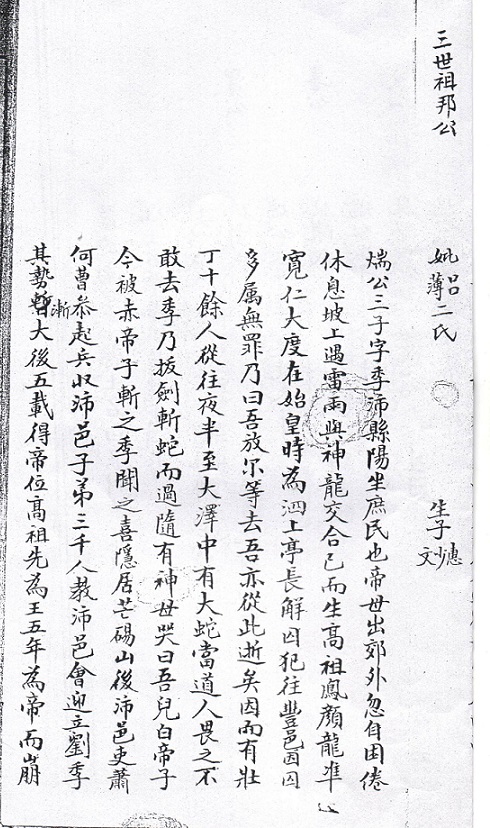 三世祖邦公
妣呂薄二氏 生子惠少文
煓公三子字季沛縣陽坐庶民也帝母出郊外忽自困倦
休息坡上遇雷雨與神龍交合已而生高祖鳳顏龍準
寬仁大度在始皇時為泗上亭長解囚犯往豐邑因囚
多属無罪乃曰吾放尔等去吾亦從此逝矣因而有壯
丁十餘人從往夜半至大澤中有大蛇當道人畏之不
敢去季乃拔劍斬蛇而過隨有神母哭曰吾兒白帝子
今被赤帝子斬之季聞之喜隱居芒碭山後沛邑吏蕭
何曹叅起兵收沛邑子弟三千人教沛邑會迎立劉季
其勢漸大後五載得帝位高祖先為王五年為帝而崩